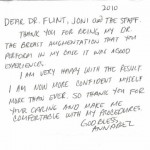 2010
DEAR DR. FLINT, JONI AND THE STAFF.
THANK YOU FOR BEING MY DR.
THE BREAST AUGMENTATION THAT YOU
PERFORM IN MY CASE IT WAS GOOD
EXPERIENCE.
I AM VERY HAPPY WITH THE RESULT
I AM NOW MORE CONFIDENT MYSELF
MORE THAN EVER. SO THANK YOU FOR
YOUR CARING AND MAKE ME
COMFORTABLE WITH MY PROCEDURES.
GOD BLESS,
ANNABEL